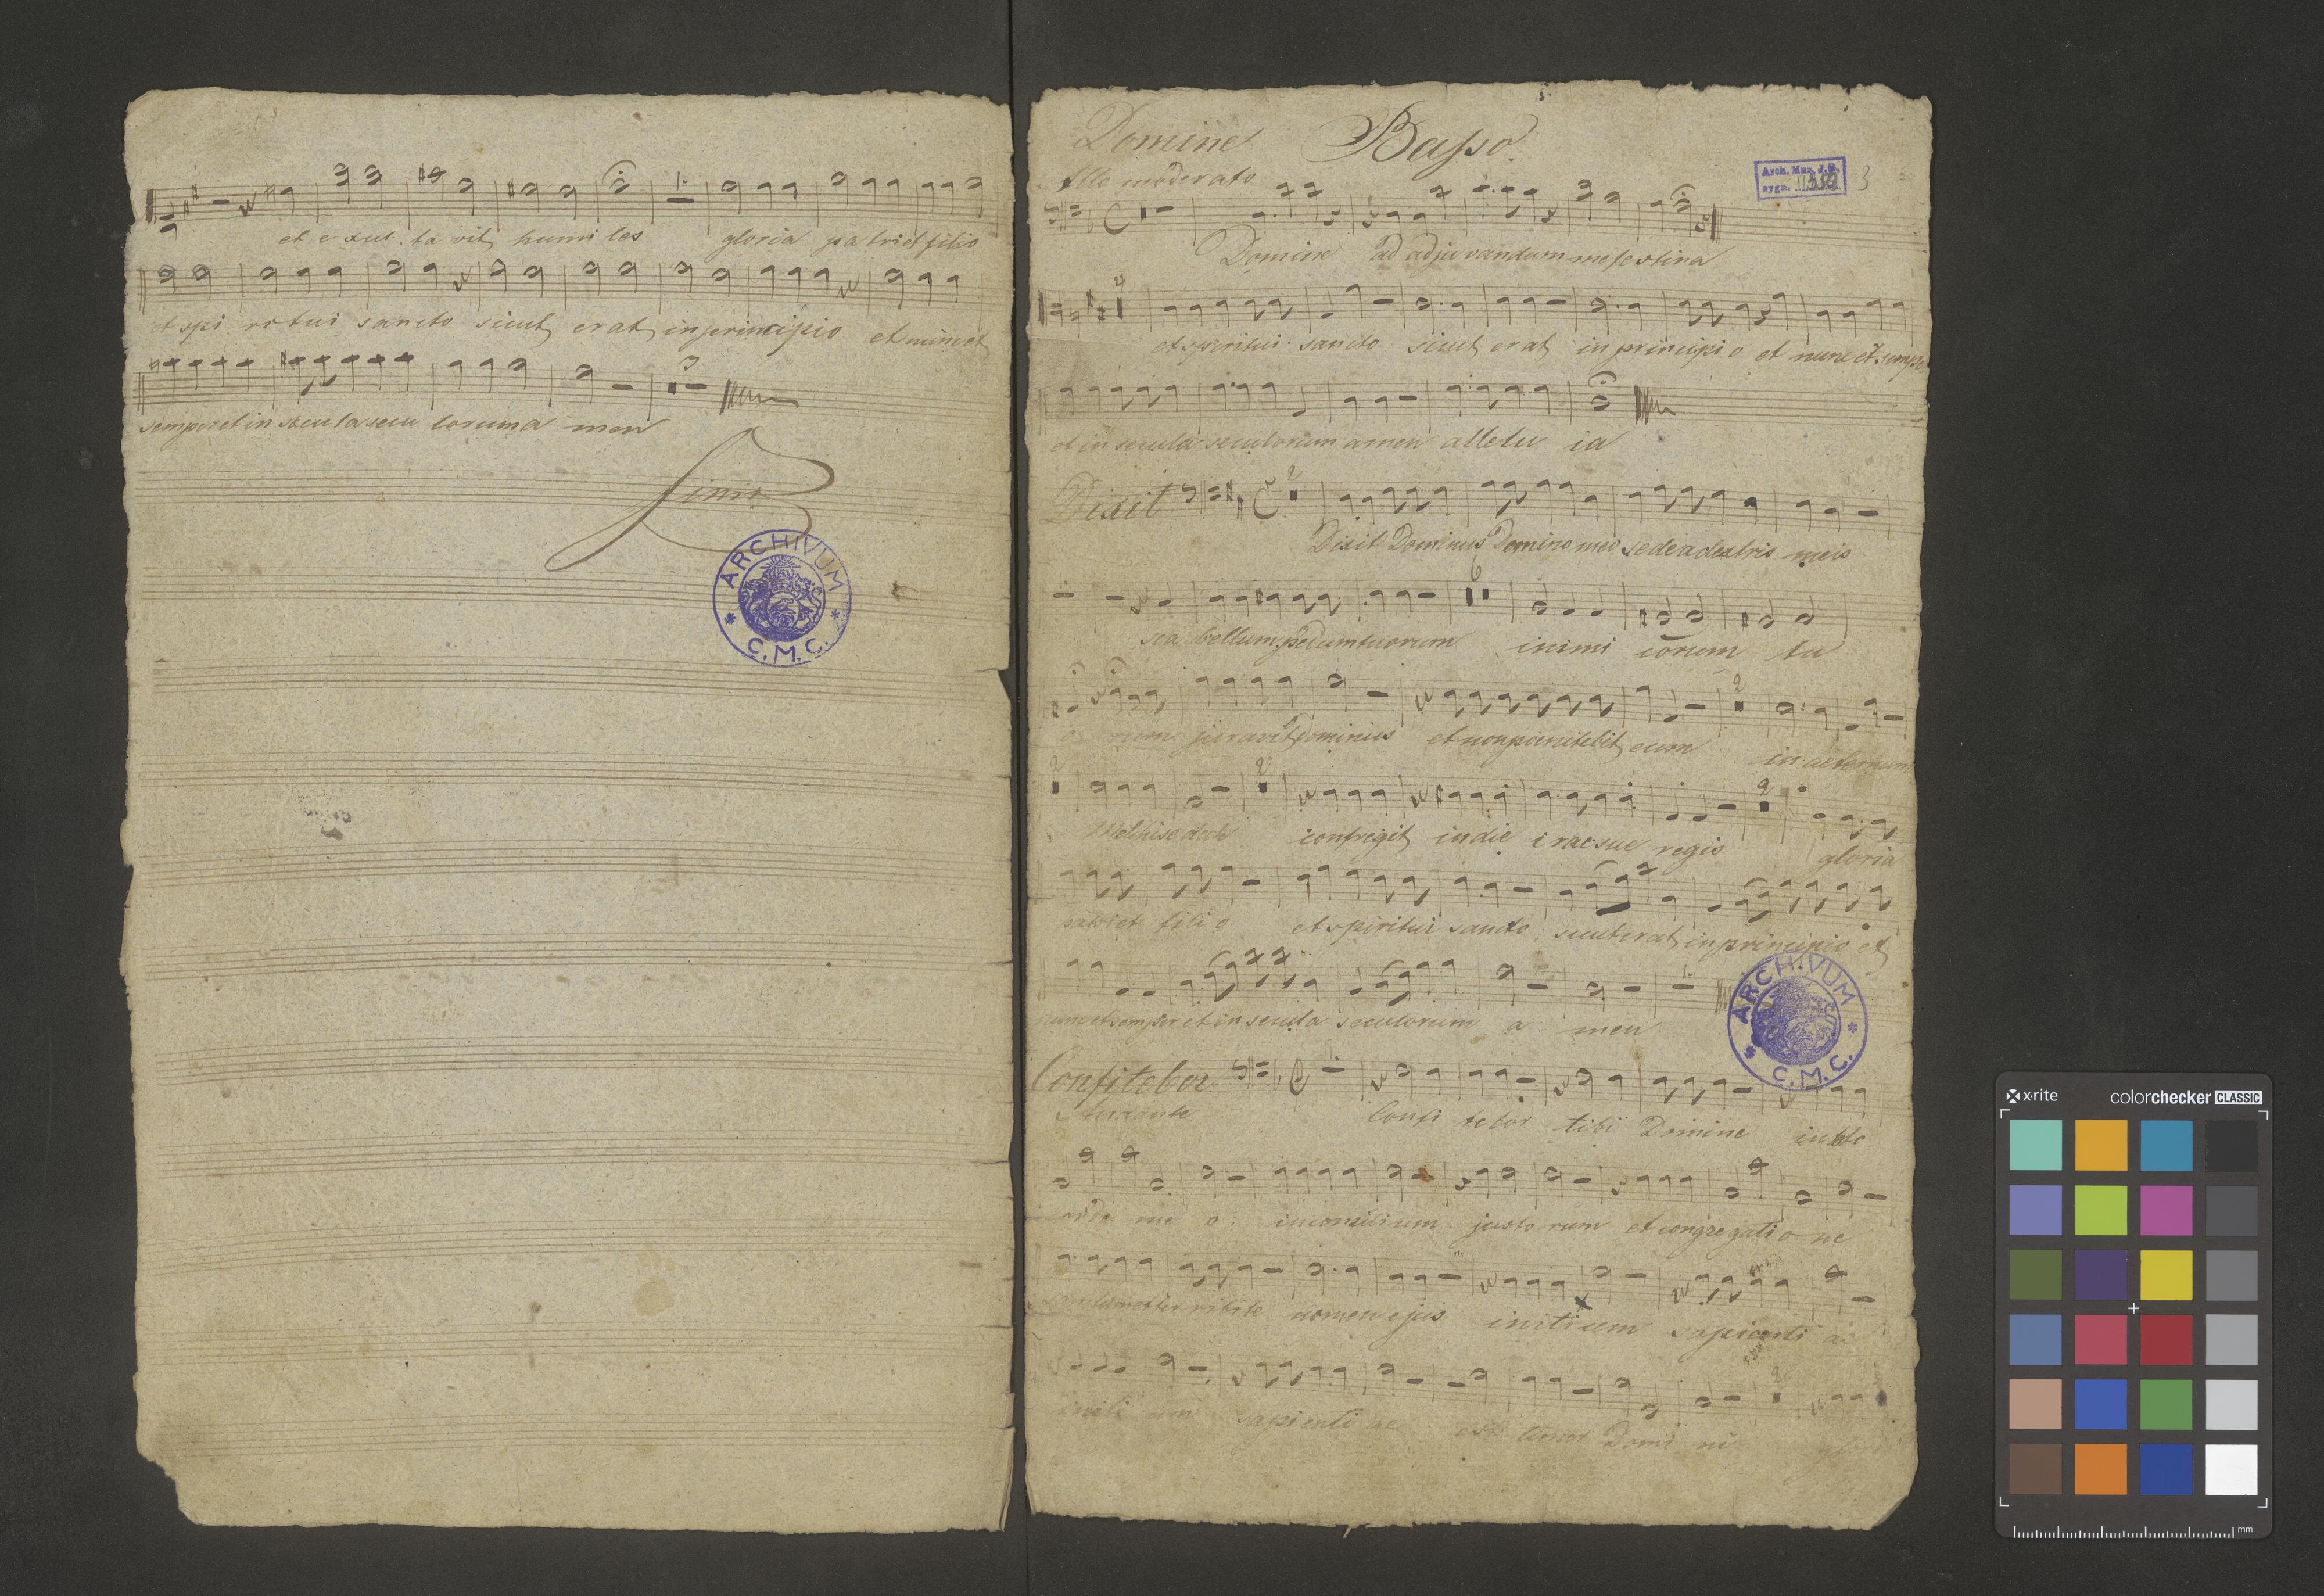 et exul. ta vit humi les gloria patri et filio
et spi ritui sancto sicut erat in principio et nunc et
semper et in secula secu loruma men
Finis
ARCHIVUM
* C.M.C. *
Domine Basso
Allo moderato
Arch. Muz. J.G.
sygn.
3
Domine ad adjuvandum me festina
et spiritui sancto sicut erat in principio et nunc et semper
et in secula seculorum amen allelu ia
Dixit
2
Dixit Dominus Domino meo sede a dextris meis
6
sca bellum pedum tuorum inimi corum tu
2
o rum juravit Dominus et non penitebit eum in aeternum
2 2 2
Melchisedech confregit in die i rae sue regis gloria
patri et filio et spiritui sancto sicut erat in principio et
nunc et semper et in secula seculorum a men
ARCHIVUM
* C.M.C. *
Confitebor
Andante Confi tebor tibi Domine in toto
corde me o in consilium justo rum et congregatio ne
nomen ejus initium sapienti ae
2
initi um sapienti ae est timor Domi ni glori
x·rite colorchecker CLASSIC
mm